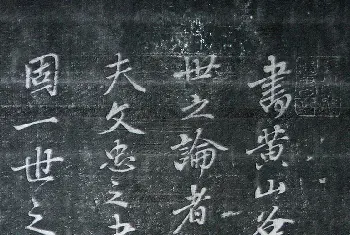 書黄山谷
世之論者
夫文忠之
固一世之